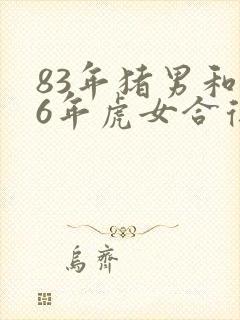 83年猪男和
6年虎女合
烏齊